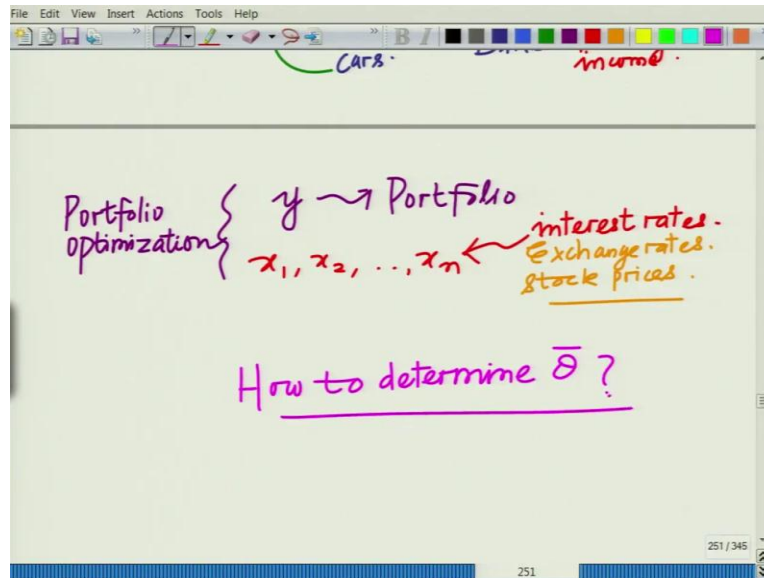 File Edit View Insert Actions Tools Help
B I
Cars.
income.
Portfolio
optimization
y → Portfolio
x₁, x₂, .., xₙ
interest rates.
Exchange rates.
Stock prices.
How to determine θ̄ ?
251 / 345
251